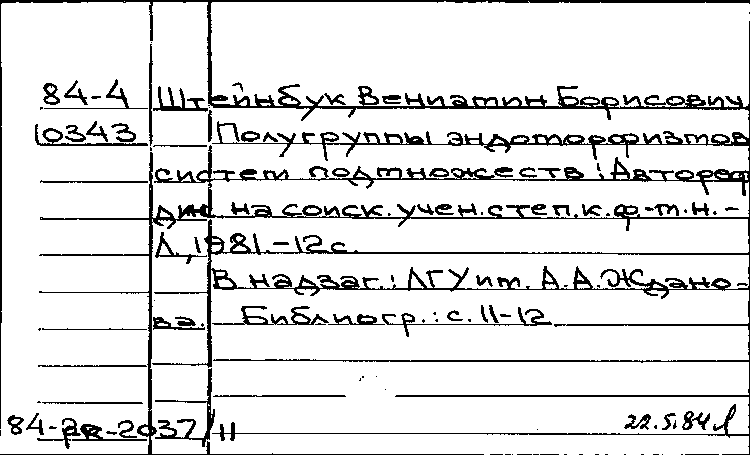 84-4 Штейнбук, Вениамин Борисович.
10343 Полугруппы эндоморфизмов
систем подмножеств : Автореф
дис. на соиск. учен. степ. к. ф.-м. н. -
Л., 1981. - 12 с.
В надзаг.: ЛГУ им. А. А. Ждано-
ва. Библиогр.: с. 11-12
84-рк-2037/11 22.5.84